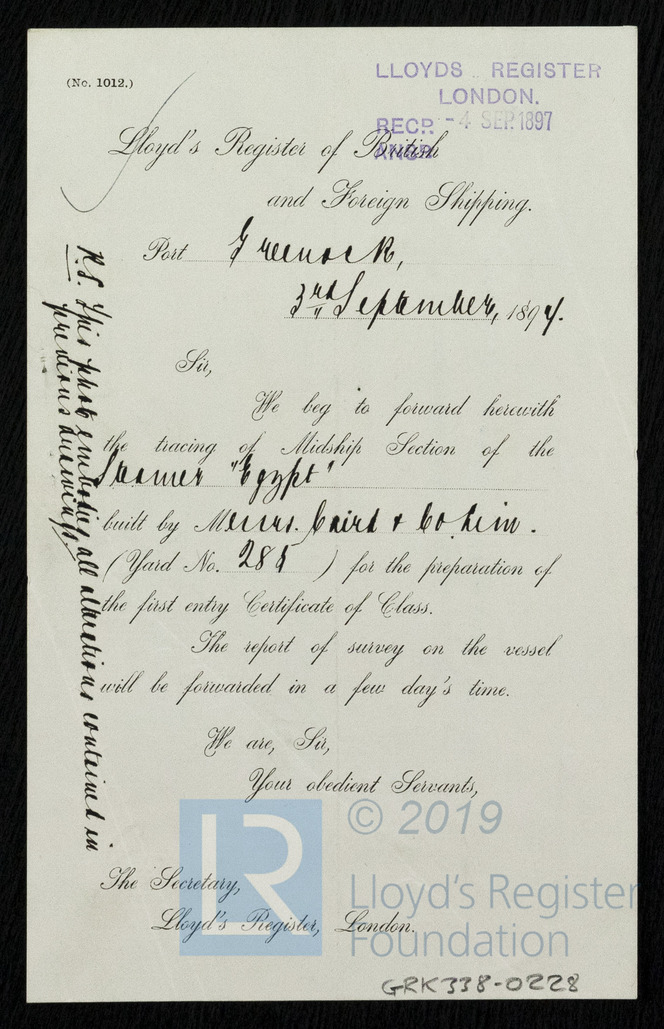 (No. 1012.)
LLOYDS REGISTER
LONDON.
RECD. -4 SEP. 1897
Lloyd's Register of British
and Foreign Shipping.
Port Greenock,
3rd September, 1897.
Sir,
We beg to forward herewith
the tracing of Midship Section of the
Steamer "Egypt"
built by Messrs. Caird & Co. Lim.
(Yard No. 285) for the preparation of
the first entry Certificate of Class.
The report of survey on the vessel
will be forwarded in a few day's time.
We are, Sir,
Your obedient Servants,
The Secretary,
Lloyd's Register, London.
P.S. This photo embodies all alterations contained in
previous drawings.
LR
© 2019
Lloyd's Register
Foundation
GRK338-0228